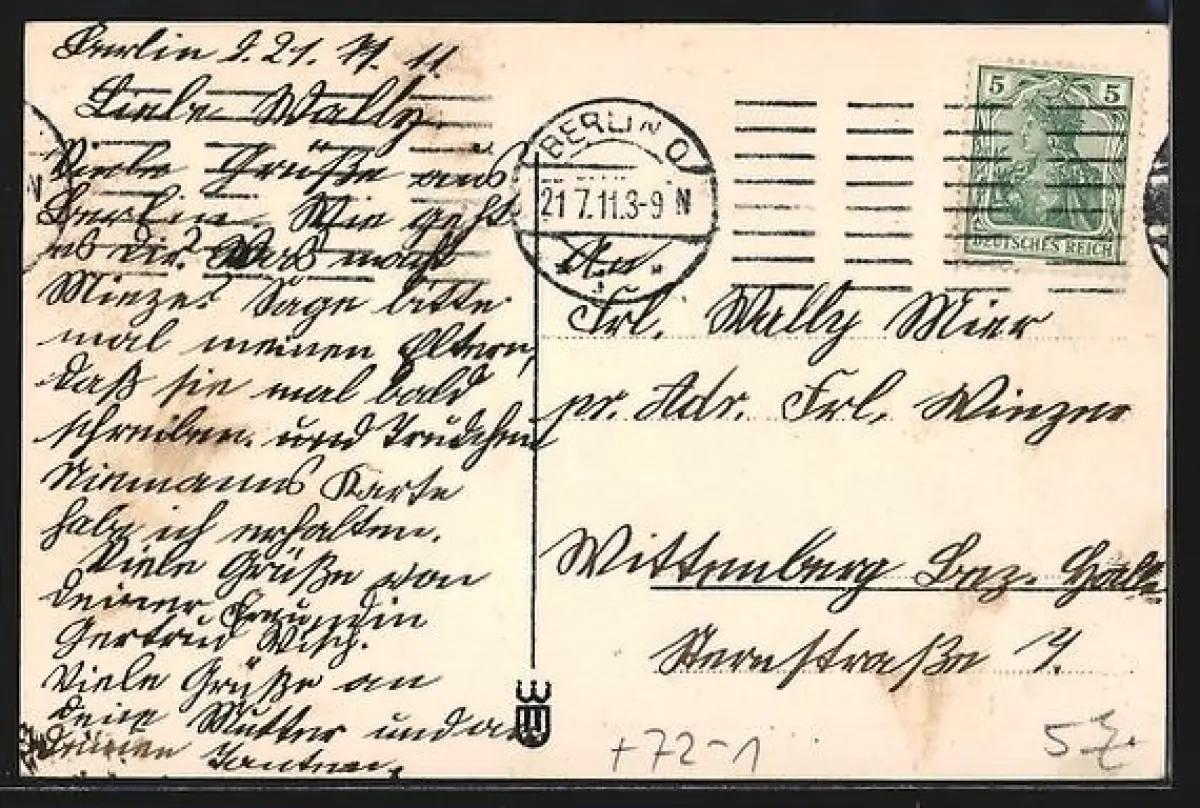 Berlin d. 21. 7. 11.
Liebe Wally.
Viele Grüße aus
Berlin. Wie geht
es dir? Was macht
Mieze? Sage bitte
mal meinen Eltern,
daß sie mal bald
schreiben. und Trudchen
Niemanns Karte
habe ich erhalten.
Viele Grüße von
deiner Freundin
Gertrud Wisch.
Viele Grüße an
deine Mutter und an
deinen Tanten.
BERLIN O
21 7.11.3-9 N
5 5
DEUTSCHES REICH
An
Frl. Wally Mier
pr. Adr. Frl. Winzer
Wittenberg Bez. Halle
Sternstraße 7.
+72-1